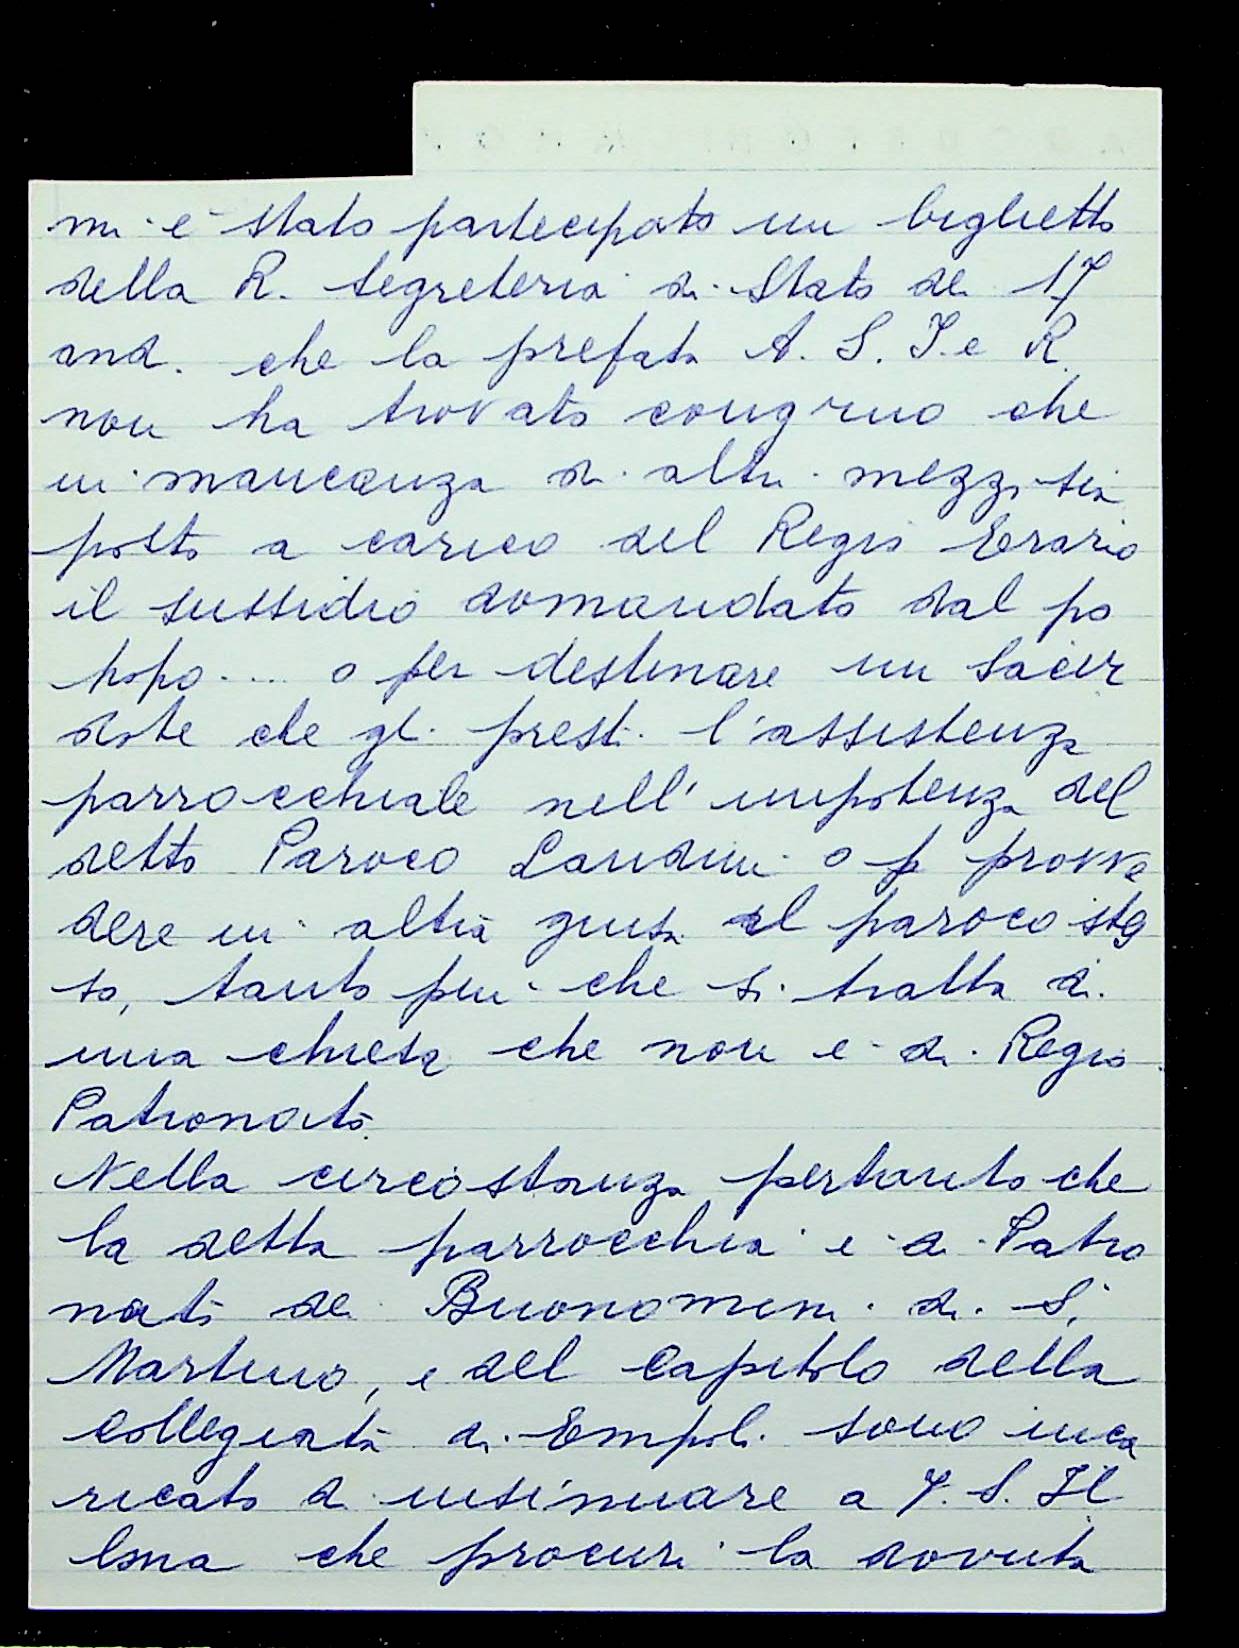 mi è stato partecipato un biglietto
della R. Segreteria di Stato de 17
and. che la prefata A. S. I. e R.
non ha trovato congruo che
in mancanza di altri mezzi sia
posto a carico del Regio Erario
il sussidio domandato dal po
popo.... o per destinare un Sacer
dote che gli presti l'assistenza
parrocchiale nell'impotenza del
detto Paroco Landini o p provve
dere in altra guisa al paroco stes
so, tanto più che si tratta di
una chiesa che non è di Regio
Patronato.
Nella circostanza pertanto che
la detta parrocchia è di Patro
nato dei Buonomini di S.
Martino, e del Capitolo della
Collegiata di Empoli sono inca
ricato di insinuare a V. S. Il
lma che procuri la dovuta